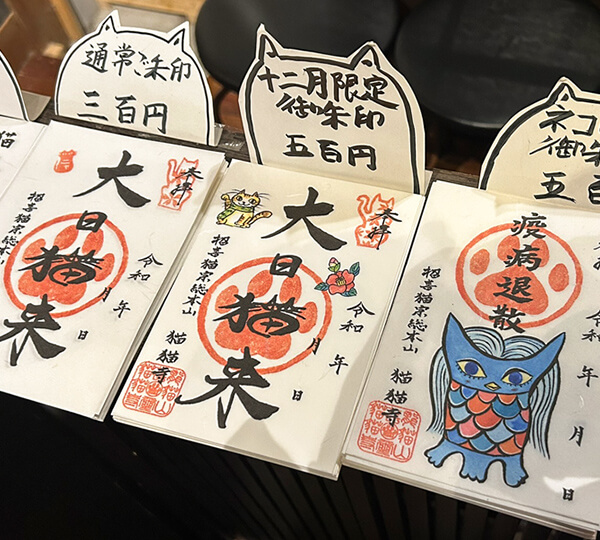 猫
通常ご朱印
三百円
十二月限定
御朱印
五百円
ネコ
御朱
五百
奉拝
大日猫来
令和 年 月 日
招喜猫宗総本山
猫猫寺
奉拝
大日猫来
令和 年 月 日
招喜猫宗総本山
猫猫寺
疫病退散
令和 年 月 日
招喜猫宗総本山
猫猫寺